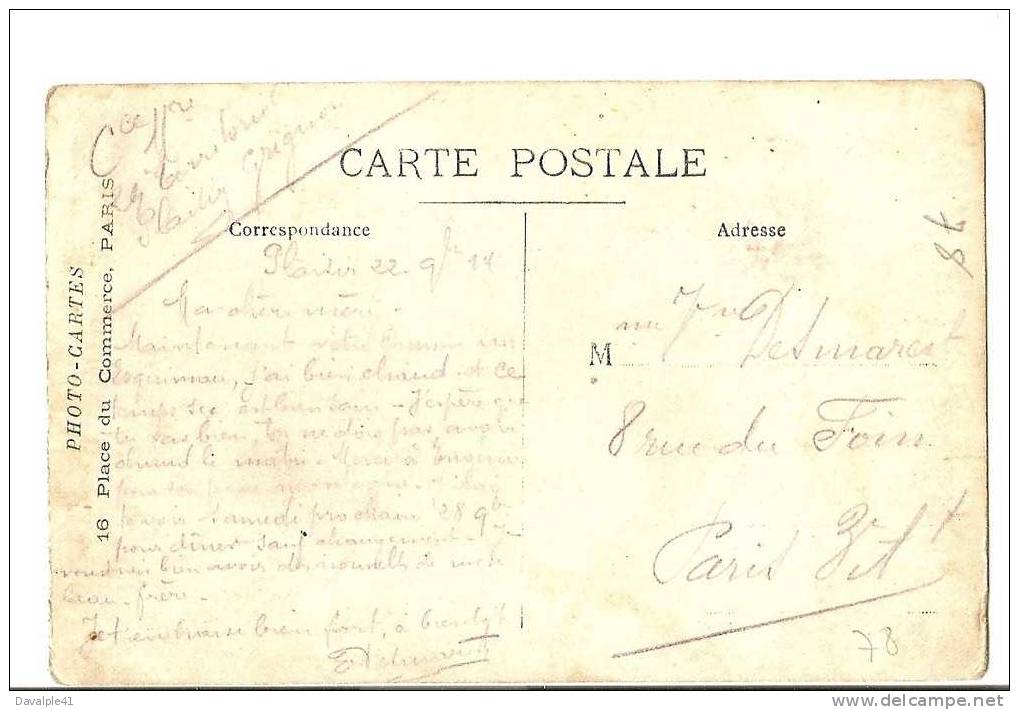 Cie 11re
29e Territorial
Plaisir Grignon
CARTE POSTALE
Correspondance
Adresse
PHOTO-CARTES
16 Place du Commerce, PARIS
Plaisir 22 9bre 14
Ma chère mère.
Maintenant vêtu comme un
Esquimau, j'ai bien chaud et ce
temps sec est bien sain - J'espère que
tu vas bien, tu ne dois pas avoir
chaud le matin - Merci à
pour sa
samedi prochain 28 9bre
pour dîner sauf changement - Je
voudrais bien avoir des nouvelles de mon
beau-frère -
Je t'embrasse bien fort, à bientôt
EDesmarest
M me Vve Desmarest
8 rue du Foin
Paris 3e Art
8t
78
Davalple41
www.delcampe.net